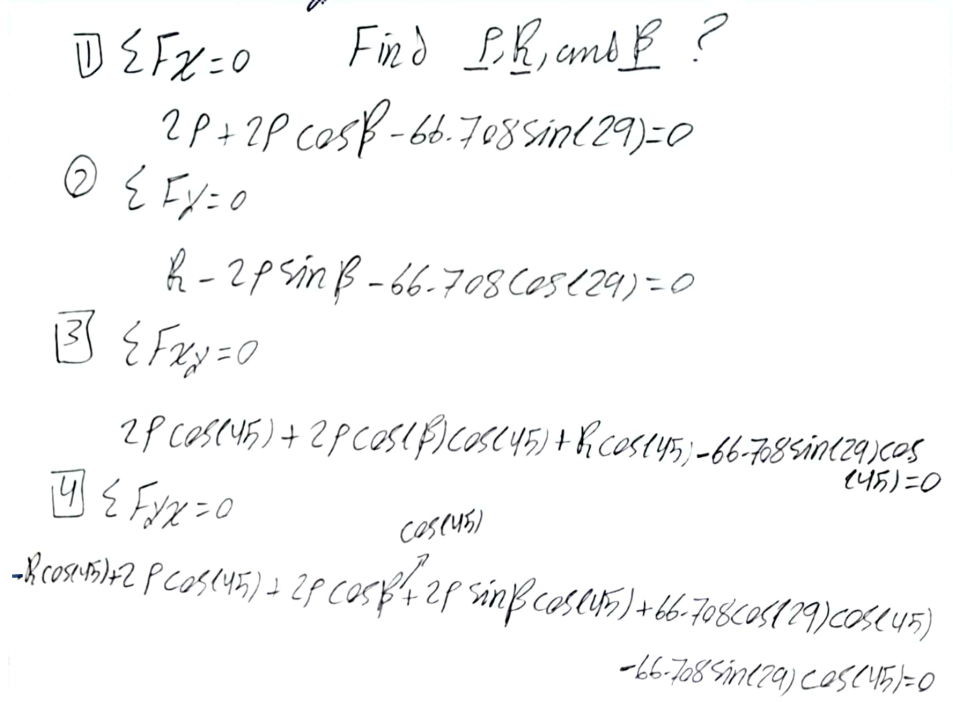 1 ΣFx=0 Find P, R, and β ?
2P+2P cosβ-66.708sin(29)=0
2 ΣFy=0
R-2P sinβ-66.708cos(29)=0
3 ΣFxy=0
2Pcos(45)+2Pcos(β)cos(45)+Rcos(45)-66.708sin(29)cos
(45)=0
4 ΣFyx=0
cos(45)
-Rcos(45)+2Pcos(45)+2Pcosβ+2P sinβcos(45)+66.708cos(29)cos(45)
-66.708sin(29)cos(45)=0